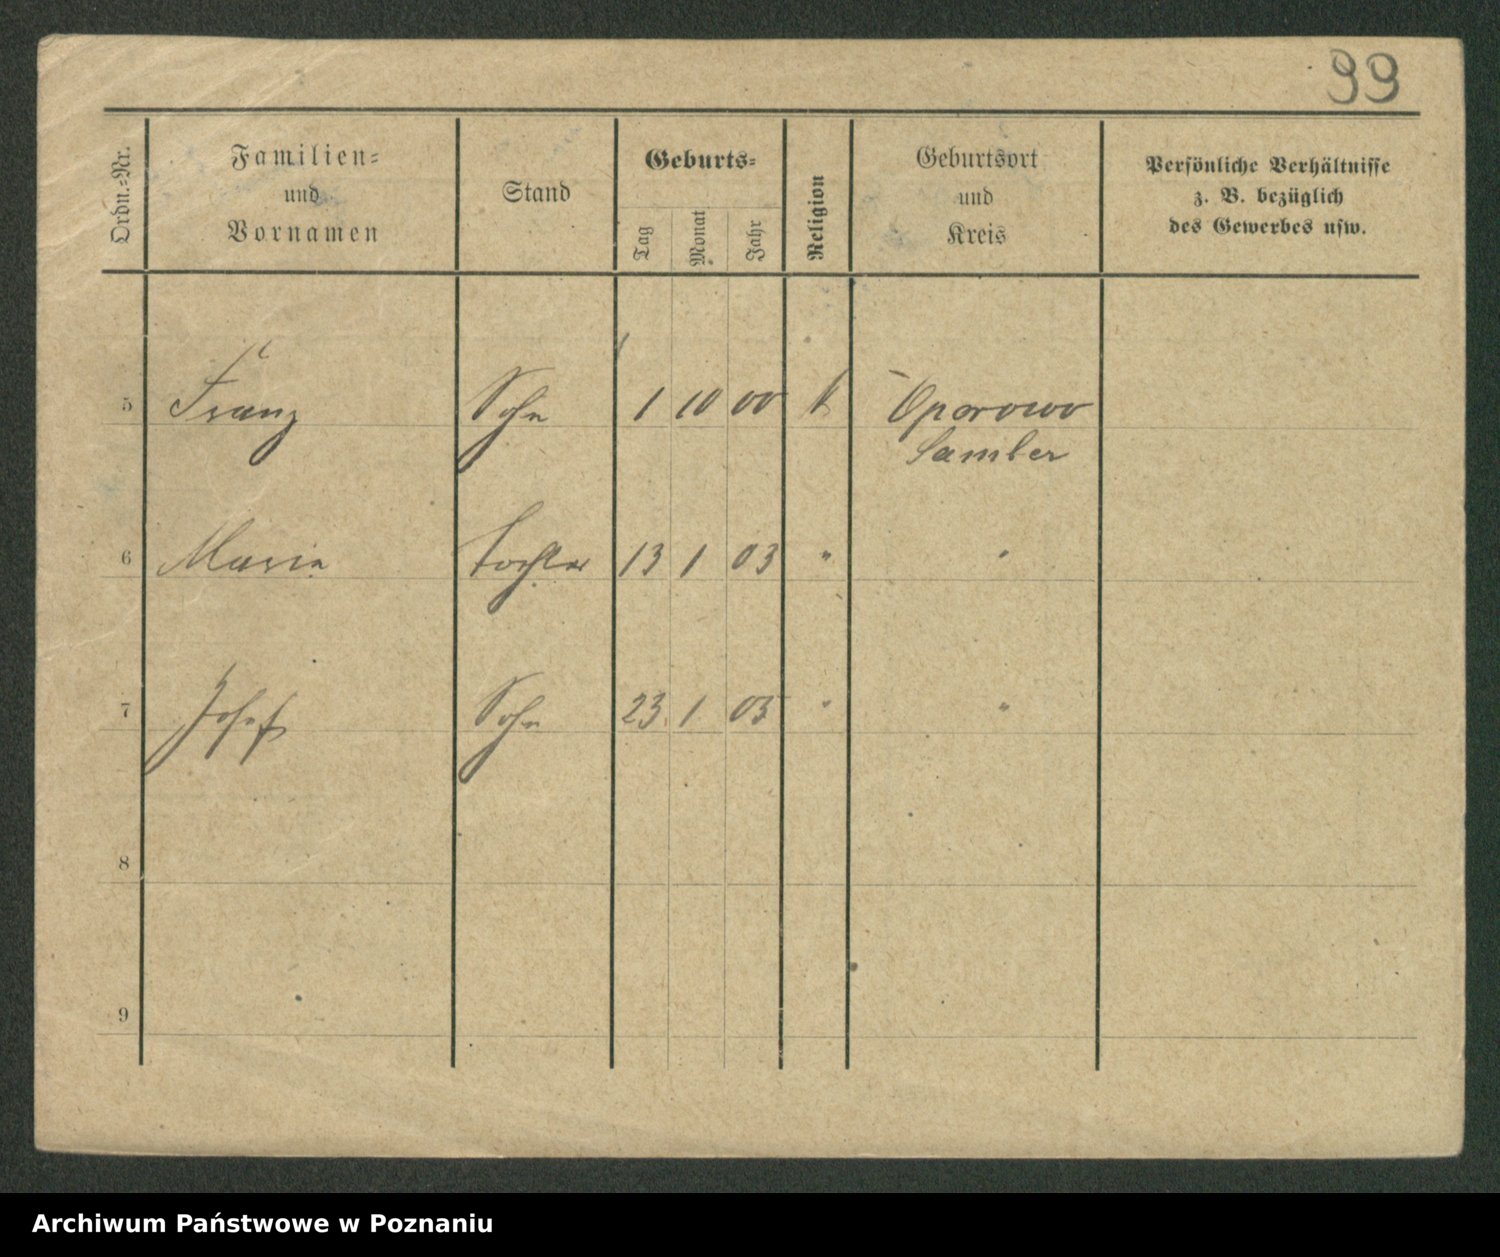 99
Ordn.-Nr.
Familien-
und
Vornamen
Stand
Geburts-
Tag
Monat
Jahr
Religion
Geburtsort
und
Kreis
Persönliche Verhältnisse
z. B. bezüglich
des Gewerbes usw.
5 Franz Sohn 1 10 00 k Oporowo
Samter
6 Maria Tochter 13 1 03 " "
7 Josef Sohn 23 1 05 " "
8
9
Archiwum Państwowe w Poznaniu